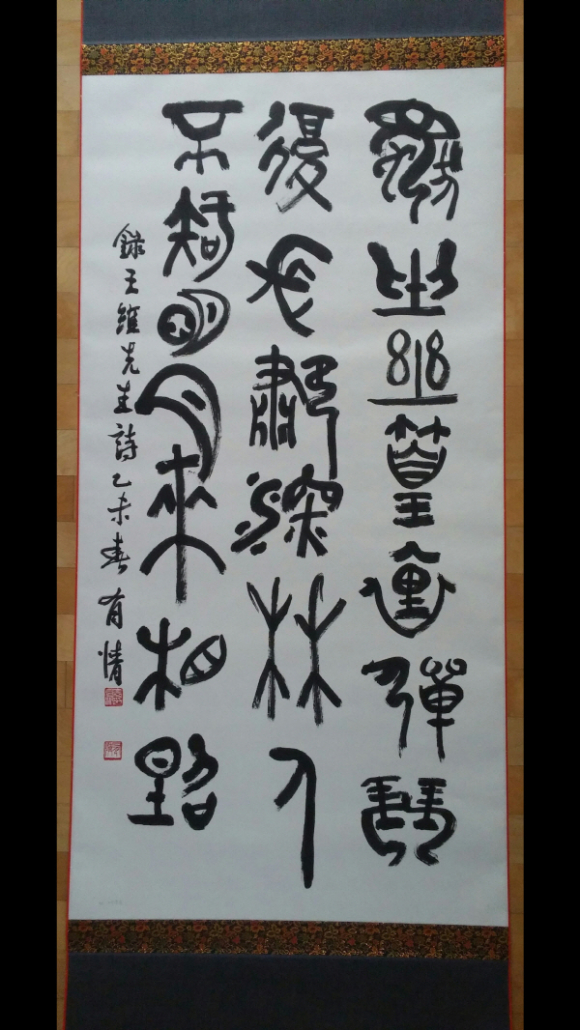 獨坐幽篁裏彈琴
復長歗深林人
不知明月來相照
錄王維先生詩乙未春有情